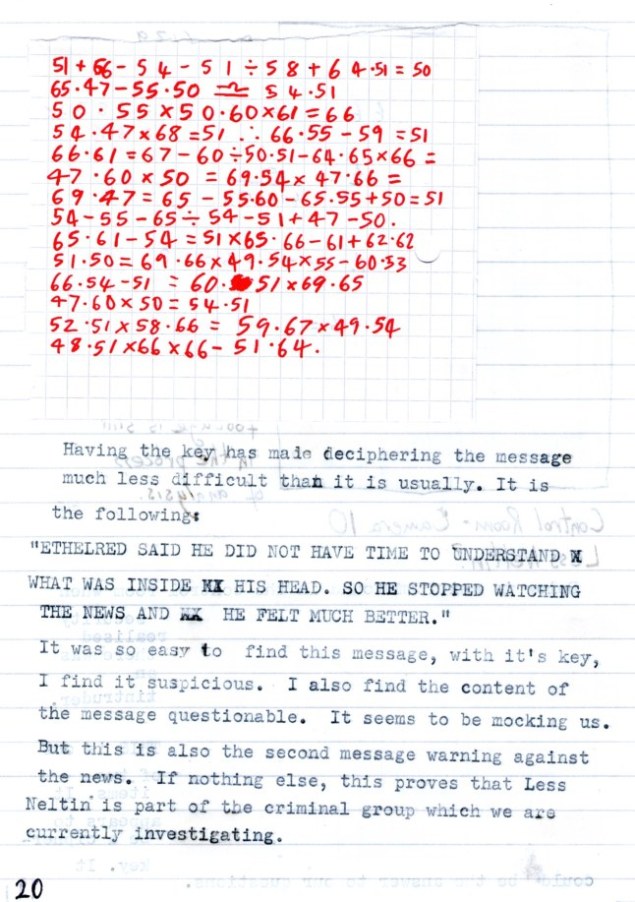 51 + 66 - 54 - 51 ÷ 58 + 64·51 = 50
65·47 - 55·50 ≏ 54·51
50·55 × 50·60 × 61 = 66
54·47 × 68 = 51 ∴ 66·55 - 59 = 51
66·61 = 67 - 60 ÷ 50·51 - 64·65 × 66 =
47·60 × 50 = 69·54 × 47·66 =
69·47 = 65 - 55·60 - 65·55 + 50 = 51
54 - 55 - 65 ÷ 54 - 51 + 47 - 50.
65·61 - 54 = 51 × 65·66 - 61 + 62·62
51·50 = 69·66 × 49·54 × 55 - 60·53
66·54 - 51 = 60· 51 × 69·65
47·60 × 50 = 54·51
52·51 × 58·66 = 59·67 × 49·54
48·51 × 66 × 66 - 51·64.
Having the key has made deciphering the message
much less difficult than it is usually. It is
the following:
"ETHELRED SAID HE DID NOT HAVE TIME TO UNDERSTAND
WHAT WAS INSIDE HIS HEAD. SO HE STOPPED WATCHING
THE NEWS AND HE FELT MUCH BETTER."
It was so easy to find this message, with it's key,
I find it suspicious. I also find the content of
the message questionable. It seems to be mocking us.
But this is also the second message warning against
the news. If nothing else, this proves that Less
Neltin is part of the criminal group which we are
currently investigating.
20